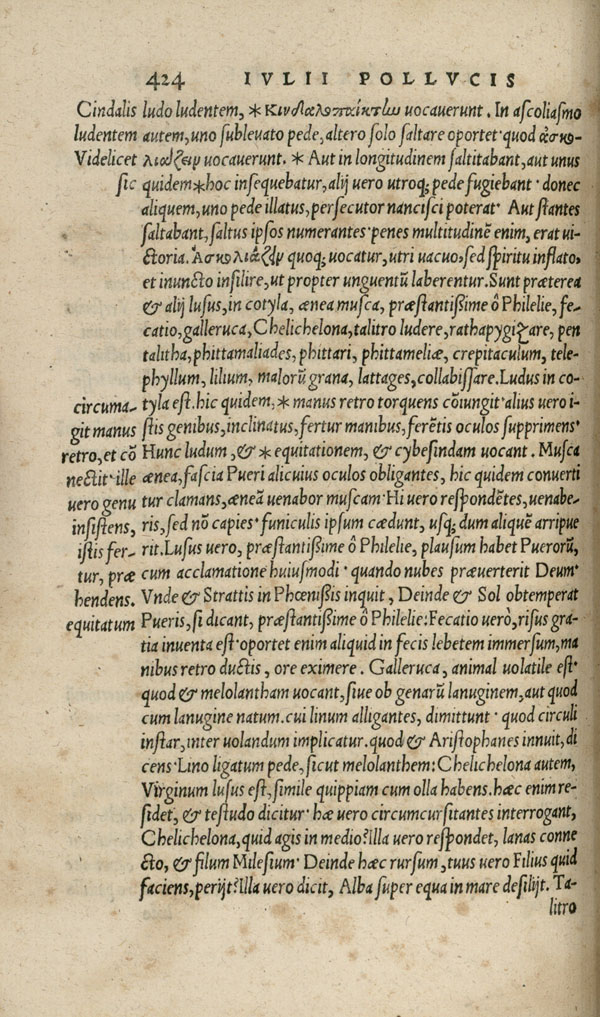 424 IVLII POLLVCIS
Cindalis ludo ludentem, * κινδαλοπαίκτω uocauerunt. In ascoliasmo
ludentem autem, uno subleuato pede, altero solo saltare oportet· quod ἀσκω-
Videlicet λιάζειν uocauerunt. * Aut in longitudinem saltitabant, aut unus
sic quidem * hoc insequebatur, alij uero utroq; pede fugiebant· donec
aliquem, uno pede illatus, persecutor nancisci poterat· Aut stantes
saltabant, saltus ipsos numerantes· penes multitudinē enim, erat ui-
ctoria. Ἀσκωλιάζειν quoq; uocatur, utri uacuo, sed spiritu inflato,
et inuncto insilire, ut propter unguentū laberentur. Sunt præterea
& alij lusus, in cotyla, ænea musca, præstantissime ô Philelie, fe-
catio, galleruca, Chelichelona, talitro ludere, rathapygizare, pen
talitha, phittamaliades, phittari, phittameliæ, crepitaculum, tele-
phyllum, lilium, malorū grana, lattages, collabissare. Ludus in co-
circuma- tyla est. hic quidem, * manus retro torquens cōiungit· alius uero i-
git manus stis genibus, inclinatus, fertur manibus, ferētis oculos supprimens·
retro, et cō Hunc ludum, & * equitationem, & cybesindam uocant. Musca
nectit· ille ænea, fascia Pueri alicuius oculos obligantes, hic quidem conuerti
uero genu tur clamans, æneā uenabor muscam· Hi uero respondētes, uenabe-
insistens, ris, sed nō capies· funiculis ipsum cædunt, usq; dum aliquē arripue
istis fer- rit. Lusus uero, præstantissime ô Philelie, plausum habet Puerorū,
tur, præ cum acclamatione huiusmodi· quando nubes præuerterit Deum·
hendens. Vnde & Strattis in Phœnissis inquit, Deinde & Sol obtemperat
equitatum Pueris, si dicant, præstantissime ô Philelie: Fecatio uerò, risus gra-
tia inuenta est· oportet enim aliquid in fecis lebetem immersum, ma
nibus retro ductis, ore eximere. Galleruca, animal uolatile est·
quod & melolantham uocant, siue ob genarū lanuginem, aut quod
cum lanugine natum. cui linum alligantes, dimittunt· quod circuli
instar, inter uolandum implicatur. quod & Aristophanes innuit, di
cens· Lino ligatum pede, sicut melolanthem: Chelichelona autem,
Virginum lusus est, simile quippiam cum olla habens. hæc enim re-
sidet, & testudo dicitur· hæ uero circumcursitantes interrogant,
Chelichelona, quid agis in medio? Illa uero respondet, lanas conne
cto, & filum Milesium· Deinde hæc rursum, tuus uero Filius quid
faciens, perijt? Illa uero dicit, Alba super equa in mare desilijt. Ta-
litro